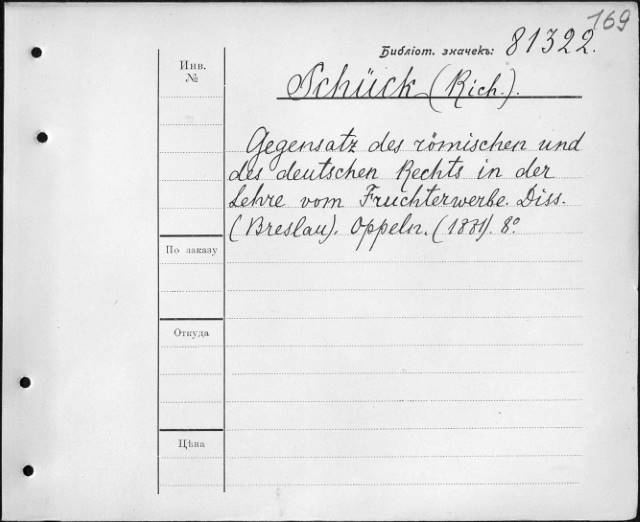 169
Библіот. значекъ: 81322.
Инв.
№
Schück (Rich.).
Gegensatz des römischen und
des deutschen Rechts in der
Lehre vom Fruchterwerbe. Diss.
(Breslau). Oppeln. (1881). 8°
По заказу
Откуда
Цѣна